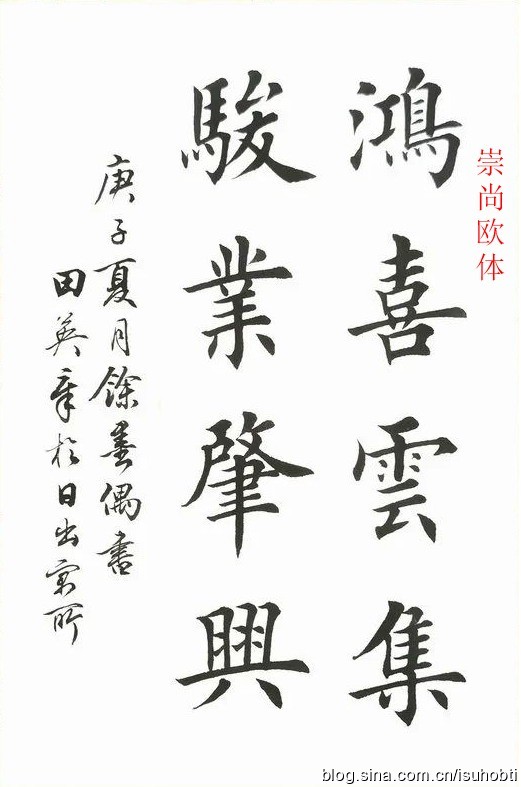 崇尚欧体
鴻喜雲集
駿業肇興
庚子夏月餘墨偶書
田英章於日出京所
blog.sina.com.cn/isuhobti